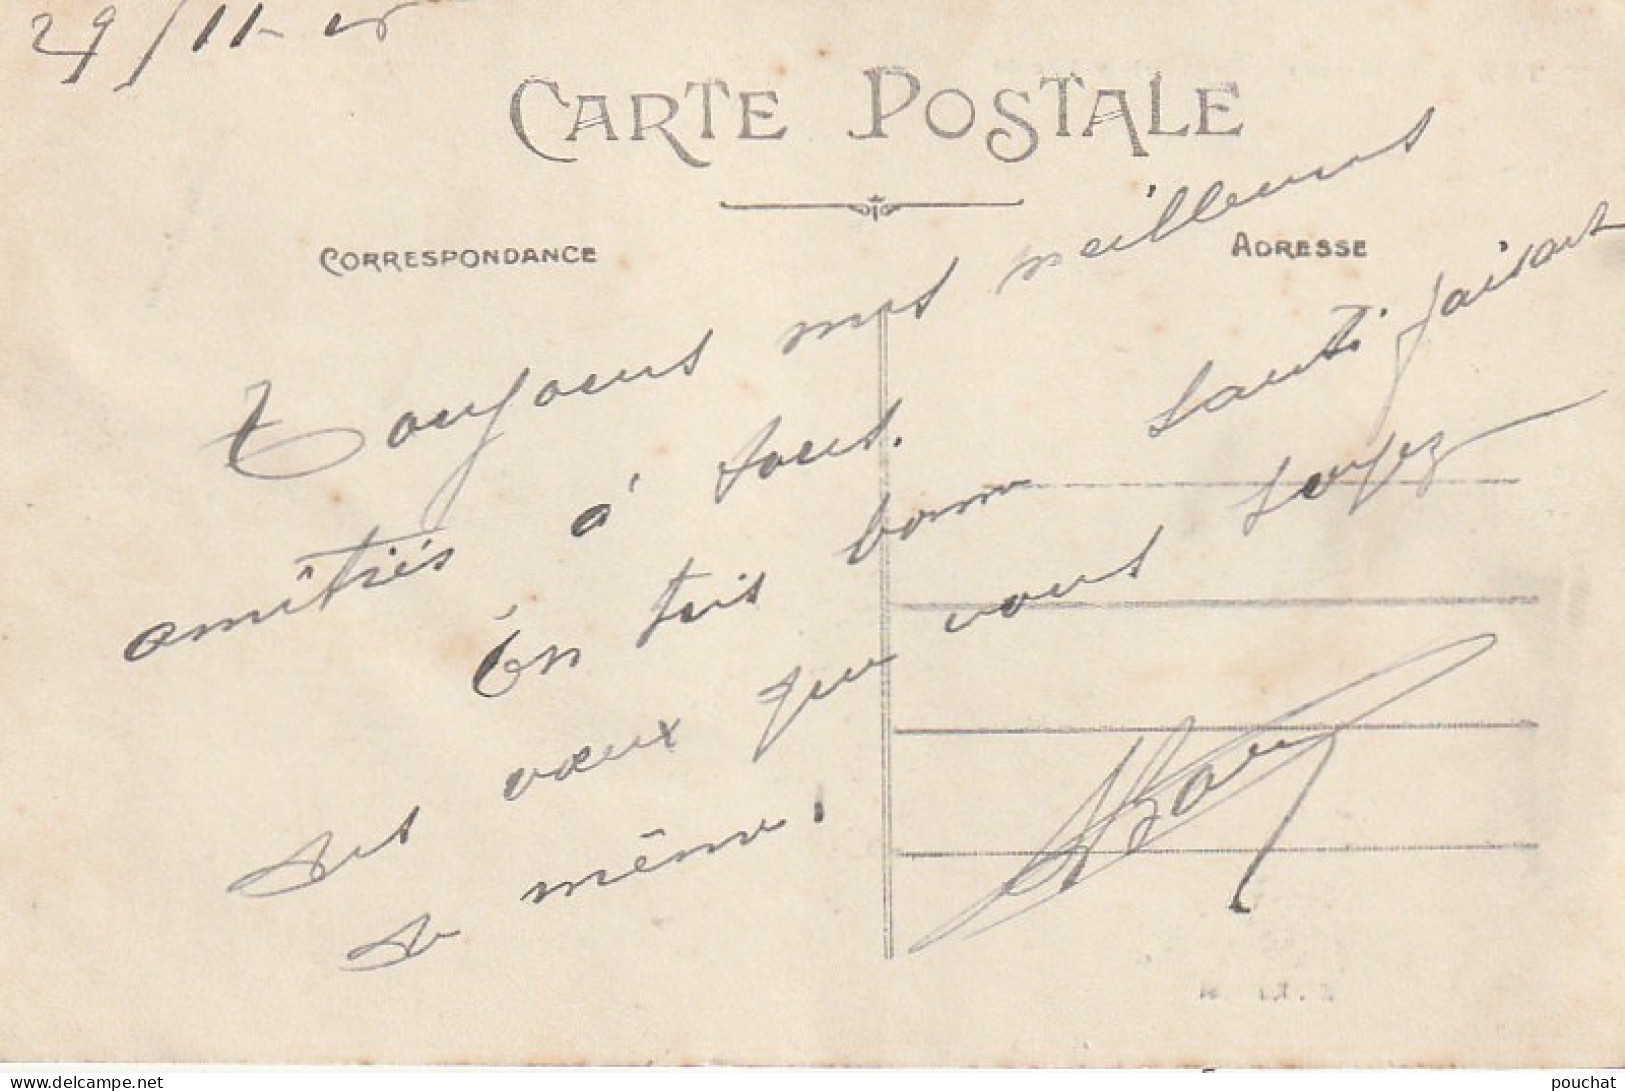 29/11-15
CARTE POSTALE
CORRESPONDANCE
ADRESSE
Toujours mes meilleures
amitiés à tous.
En très bonne santé faisant
des vœux que vous soyez
de même.
pouchat